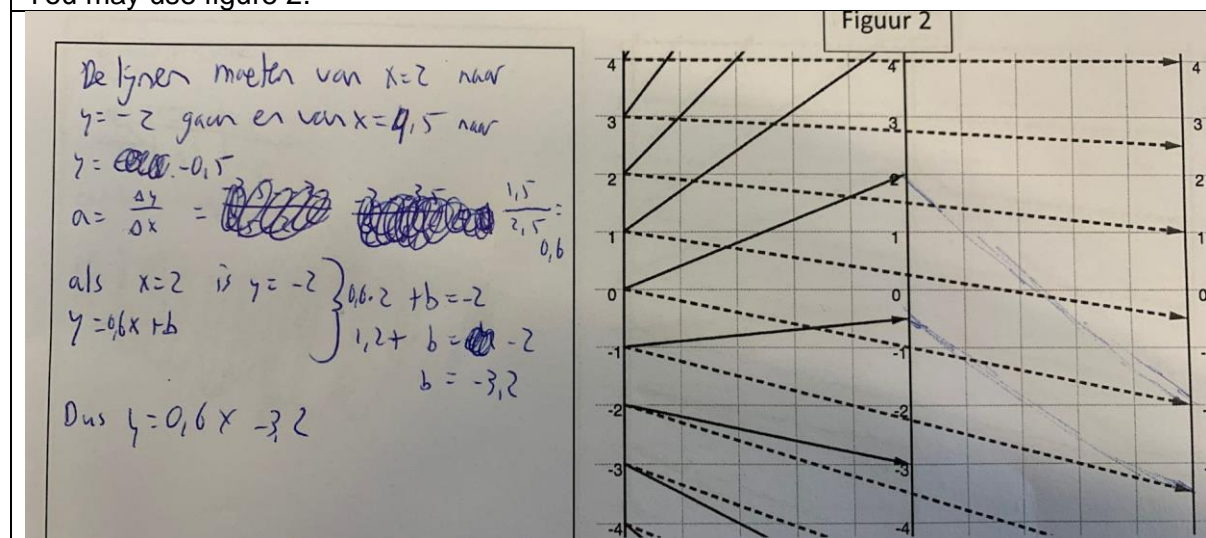 You may use figure 2.
Figuur 2
De lijnen moeten van x=2 naar
y=-2 gaan en van x=4,5 naar
y= -0,5
a= Δy/Δx = 1,5/2,5 = 0,6
als x=2 is y=-2 } 0,6·2 +b=-2
y=0,6x+b 1,2+ b= -2
b = -3,2
Dus y=0,6x -3,2
4 4 4
3 3 3
2 2 2
1 1 1
0 0 0
-1 -1
-2 -2
-3 -3
-4 -4